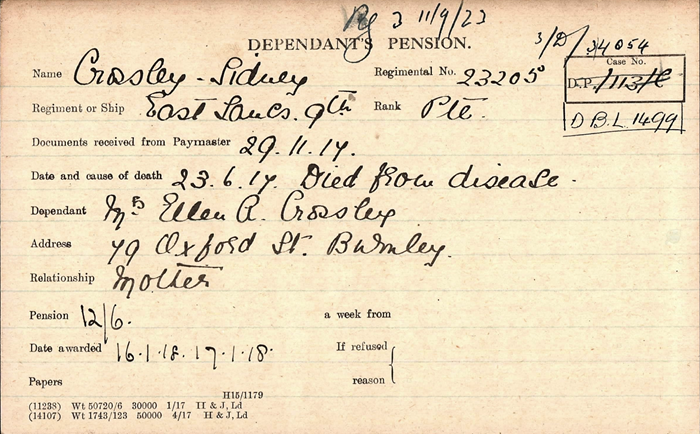 3 11/9/23
DEPENDANT'S PENSION.
3/D/ 34054
Name Crossley - Sidney Regimental No. 23205
Case No.
D.P./113/C
Regiment or Ship East Lancs. 9th Rank Pte.
D.B.L. 1499
Documents received from Paymaster 29.11.17.
Date and cause of death 23.6.17. Died from disease.
Dependant Mrs Ellen A. Crossley
Address 79 Oxford St. Burnley.
Relationship Mother
Pension 12/6. a week from
Date awarded 16.1.18. 17.1.18. If refused
Papers reason
H15/1179
(11238) Wt 50720/6 30000 1/17 H & J, Ld
(14107) Wt 1743/123 50000 4/17 H & J, Ld